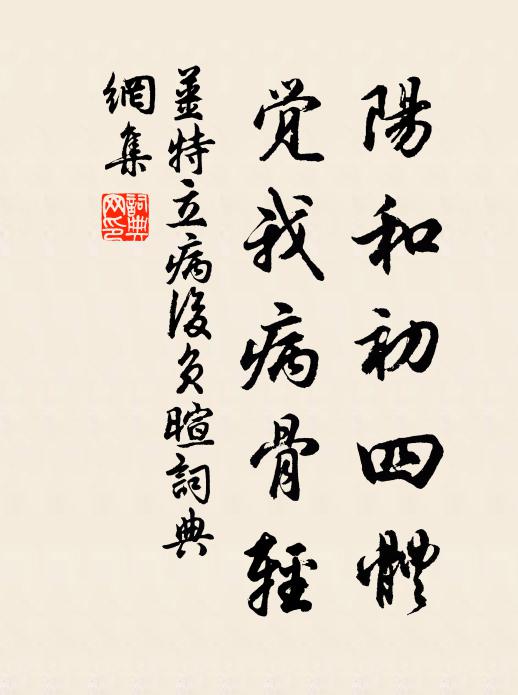 陽和初四體
覚我病骨輕
薑特立病後負暄詞典
網集
詞典
网印